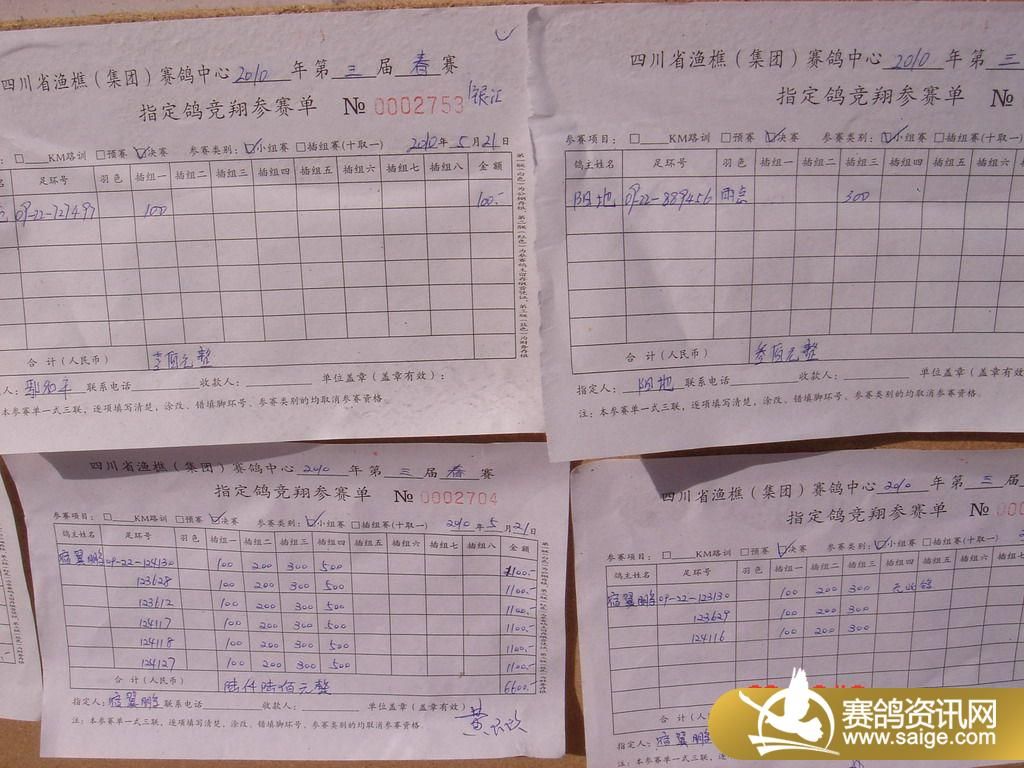 四川省渔樵（集团）赛鸽中心2010年第三届春赛
指定鸽竞翔参赛单 № 0002753
□____KM路训 □预赛 ☑决赛 参赛类别：☑小组赛 □插组赛(十取一) 2010年5月21日
名 足环号 羽色 插组一 插组二 插组三 插组四 插组五 插组六 插组七 插组八 金额
09-22-127497 100 100.-
合 计（人民币） 壹佰元整
人： 联系电话 收款人： 单位盖章（盖章有效）：
本参赛单一式三联，逐项填写清楚，涂改、错填脚环号、参赛类别的均取消参赛资格。
四川省渔樵（集团）赛鸽中心2010年第三
指定鸽竞翔参赛单 №
参赛项目：□____KM路训 □预赛 ☑决赛 参赛类别：☑小组赛 □插组赛(十取一)
鸽主姓名 足环号 羽色 插组一 插组二 插组三 插组四 插组五 插组六
阴地 09-22-889456 雨点 300
合 计（人民币） 叁佰元整
指定人：阴地 联系电话 收款人： 单位盖章（盖
注：本参赛单一式三联，逐项填写清楚，涂改、错填脚环号、参赛类别的均取消参赛资格。
四川省渔樵（集团）赛鸽中心2010年第三届春赛
指定鸽竞翔参赛单 № 0002704
参赛项目：□____KM路训 □预赛 ☑决赛 参赛类别：☑小组赛 □插组赛(十取一) 2010年5月21日
鸽主姓名 足环号 羽色 插组一 插组二 插组三 插组四 插组五 插组六 插组七 插组八 金额
宿翼鹏 09-22-124130 100 200 300 500 1100.-
123628 100 200 300 500 1100.-
123612 100 200 300 500 1100.-
124117 100 200 300 500 1100.-
124118 100 200 300 500 1100.-
124127 100 200 300 500 1100.-
合 计（人民币） 陆仟陆佰元整 6600.-
指定人：宿翼鹏 联系电话 收款人： 单位盖章（盖章有效）
注：本参赛单一式三联，逐项填写清楚，涂改、错填脚环号、参赛类别的均取消参赛资格。
四川省渔樵（集团）赛鸽中心2010年第三届
指定鸽竞翔参赛单 № 000
参赛项目：□____KM路训 □预赛 ☑决赛 参赛类别：☑小组赛 □插组赛(十取一)
鸽主姓名 足环号 羽色 插组一 插组二 插组三 插组四 插组五 插组六 插组七
宿翼鹏 09-22-123130 100 200 300
123629 100 200 300
124116 100 200 300
合 计（人
指定人：宿翼鹏
注：本参赛单一式三联
赛鸽资讯网
www.saige.com